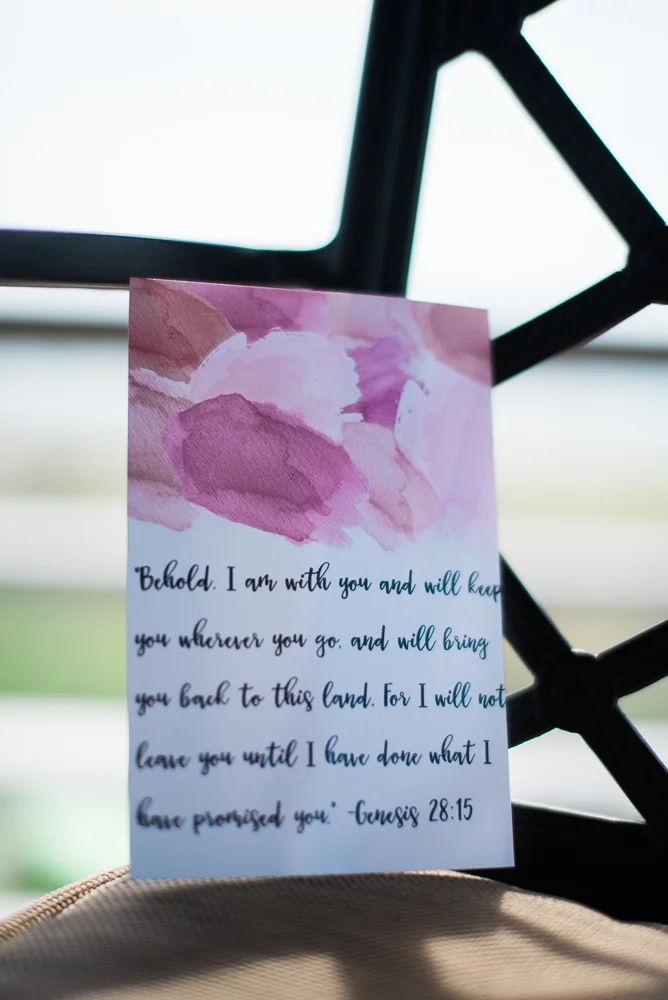 "Behold, I am with you and will keep
you wherever you go, and will bring
you back to this land. For I will not
leave you until I have done what I
have promised you." -Genesis 28:15